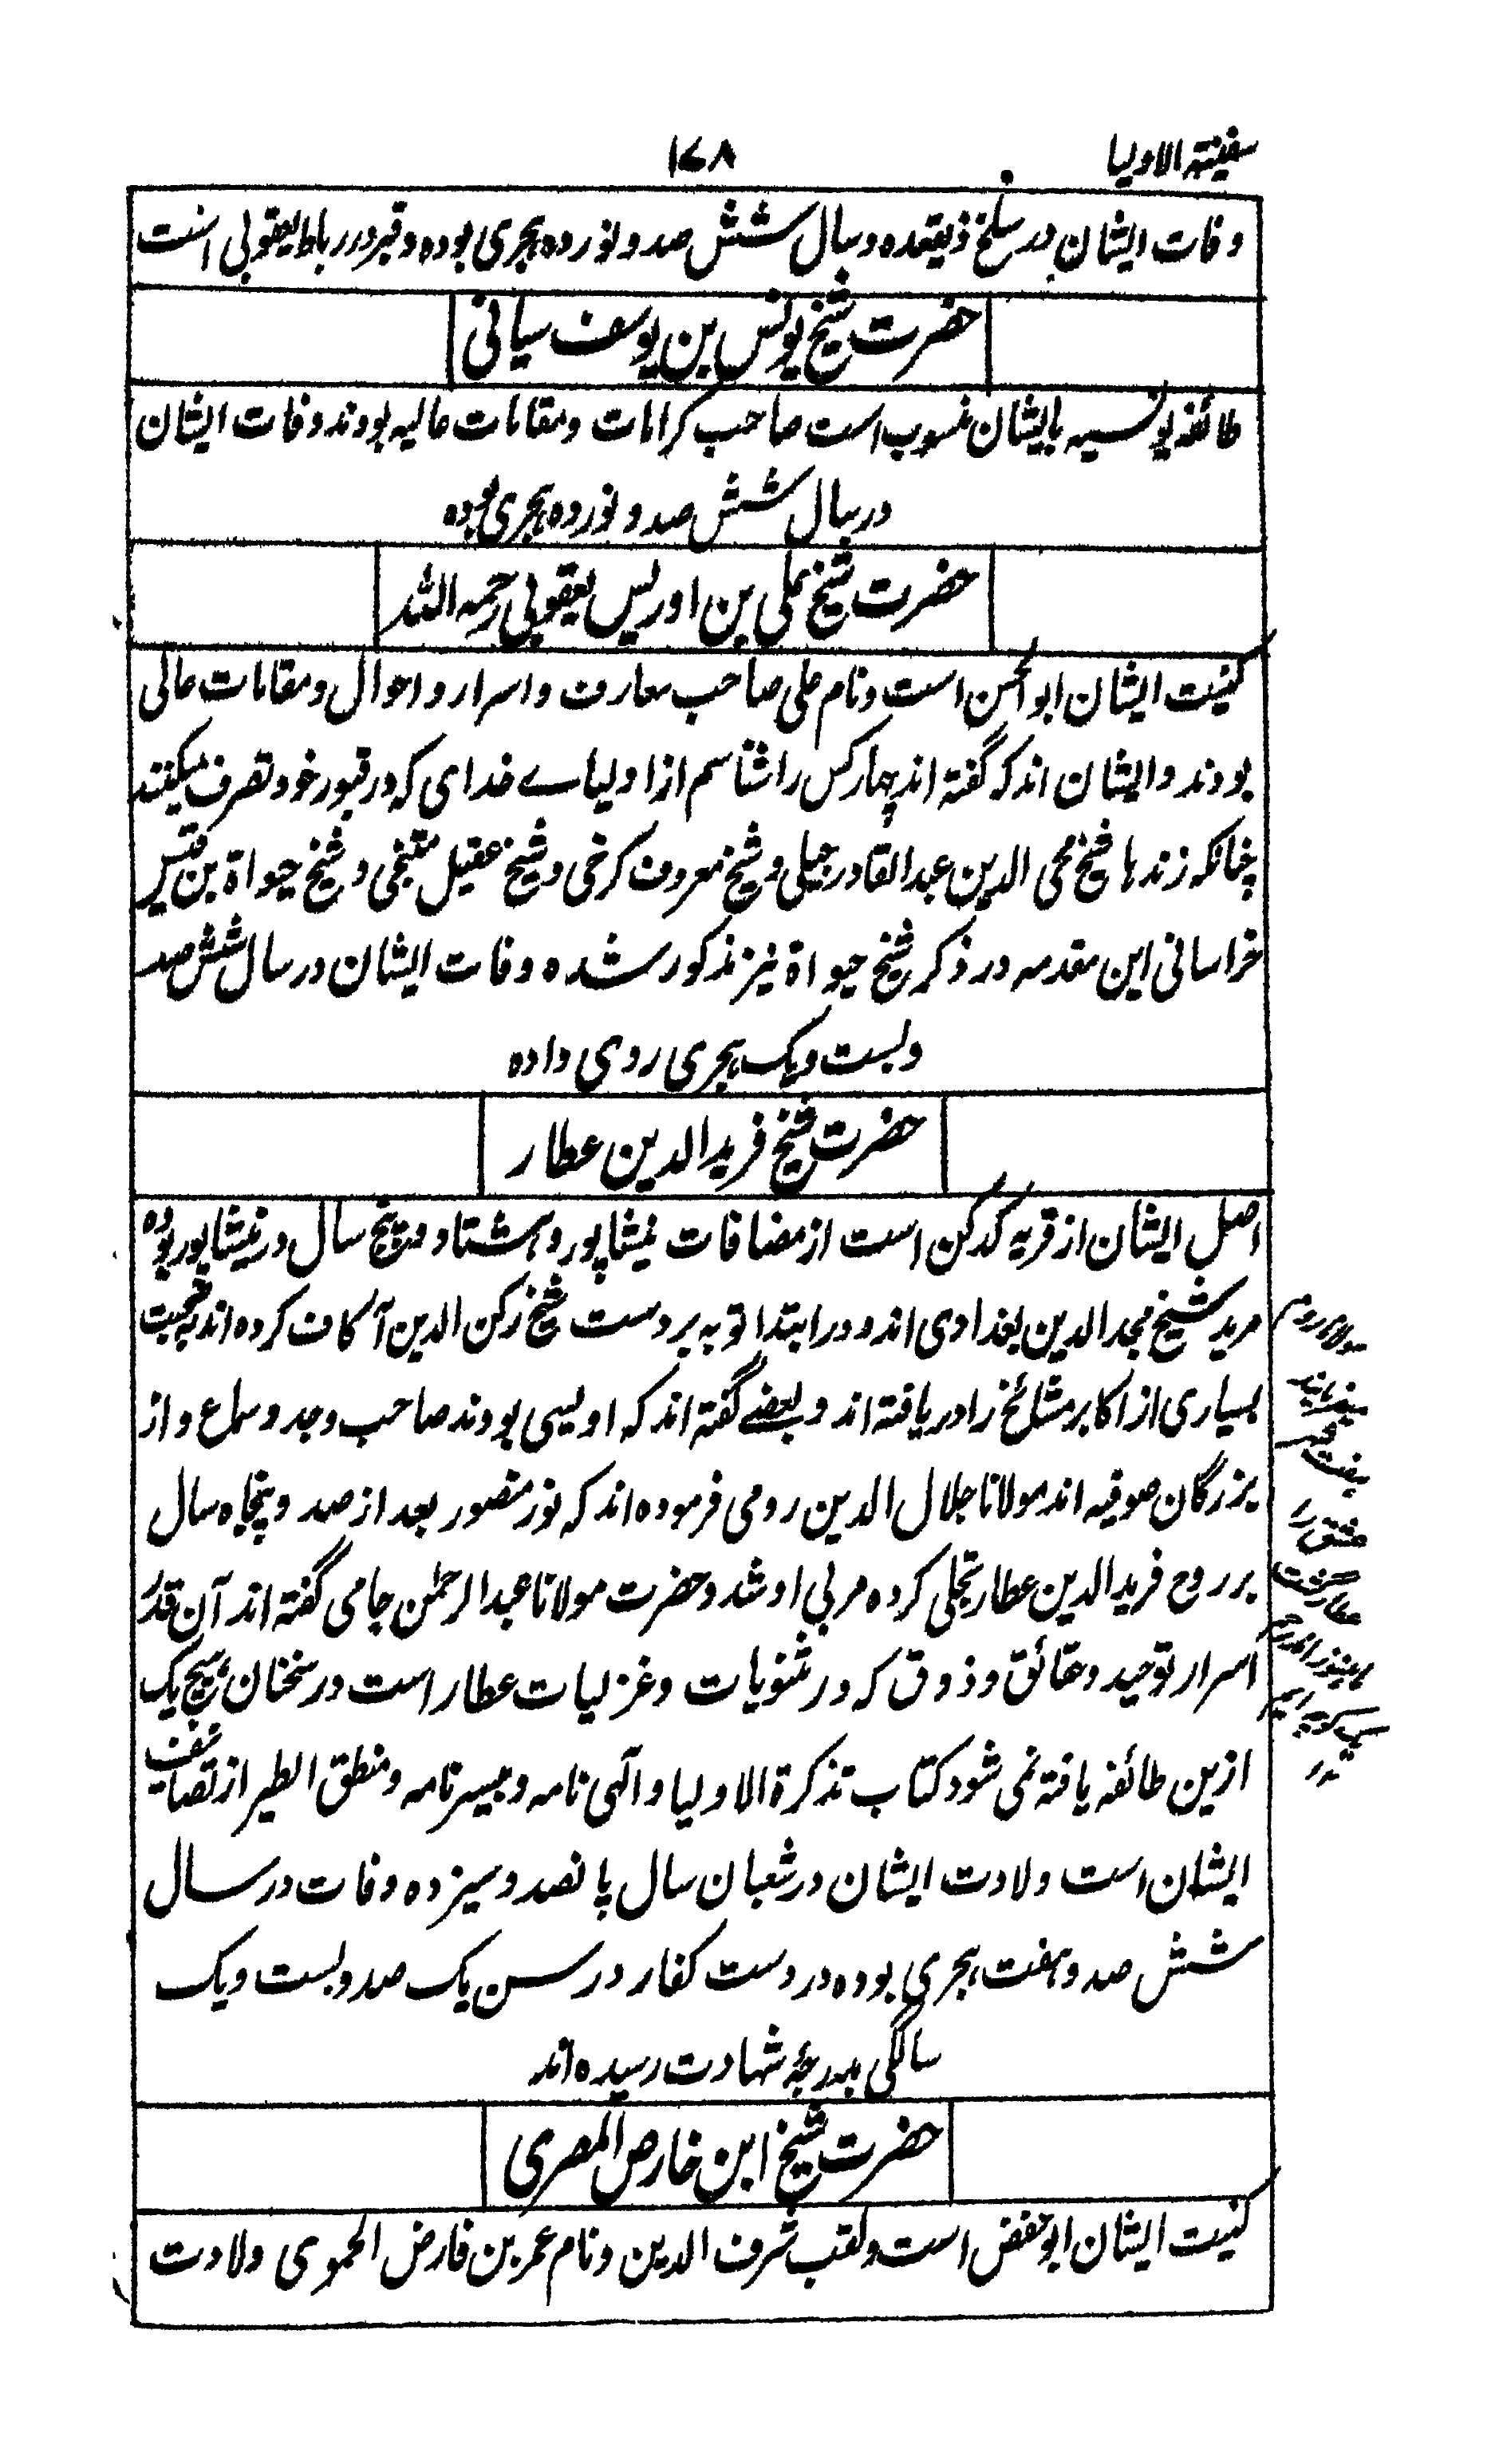 سفینۃ الاولیا
۱۷۸
وفات ایشان در سلخ ذیقعده در سال شش صد و نوزده هجری بوده و قبر در رباط یعقوبی است
حضرت شیخ یونس بن یوسف سیانی
طائفه یونسیه بایشان منسوب است صاحب کرامات و مقامات عالیه بودند وفات ایشان
در سال شش صد و نوزده هجری بوده
حضرت شیخ علی بن ادریس یعقوبی رحمه الله
کنیت ایشان ابو الحسن است و نام علی صاحب معارف و اسرار و احوال و مقامات عالی
بودند و ایشان اند که گفته اند چهار کس را شناسم از اولیاے خدای که در قبور خود تصرف میکنند
چنانکه زندها شیخ محی الدین عبد القادر جیلی و شیخ معروف کرخی و شیخ عقیل منبجی و شیخ حیواة بن قیس
خراسانی این مقدمه در ذکر شیخ حیواة نیز مذکور شده وفات ایشان در سال شش صد
و بست و یک هجری روی داده
حضرت شیخ فرید الدین عطار
اصل ایشان از قریه کدکن است از مضافات نیشاپور و هشتاد و پنج سال در نیشاپور بوده
مرید شیخ مجد الدین بغدادی اند و در ابتدا توبه بر دست شیخ رکن الدین آکاف کرده اند بصحبت
بسیاری از اکابر مشائخ را دریافته اند و بعضے گفته اند که اویسی بودند صاحب وجد و سماع و از
بزرگان صوفیه اند مولانا جلال الدین رومی فرموده اند که نور منصور بعد از صد و پنجاه سال
بر روح فرید الدین عطار تجلی کرده مربی او شد و حضرت مولانا عبد الرحمٰن جامی گفته اند آن قدر
اسرار توحید و حقائق و ذوق که در مثنویات و غزلیات عطار است در سخنان هیچ یک
ازین طائفه یافته نمی شود کتاب تذکرة الاولیا و آلهی نامه و میسر نامه و منطق الطیر از تصانیف
ایشان است ولادت ایشان در شعبان سال پانصد و سیزده وفات در سال
شش صد و هفت هجری بوده در دست کفار در سن یک صد و بست و یک
سالگی بدرجۂ شهادت رسیده اند
حضرت شیخ ابن فارض المصری
کنیت ایشان ابو حفض است و لقب شرف الدین و نام عمر بن فارض الحموی ولادت
مولای روم
میفرمایند
هفت شهر
عشق را
عطار گشت
ما هنوز اندر خم
یک کوچه ایم